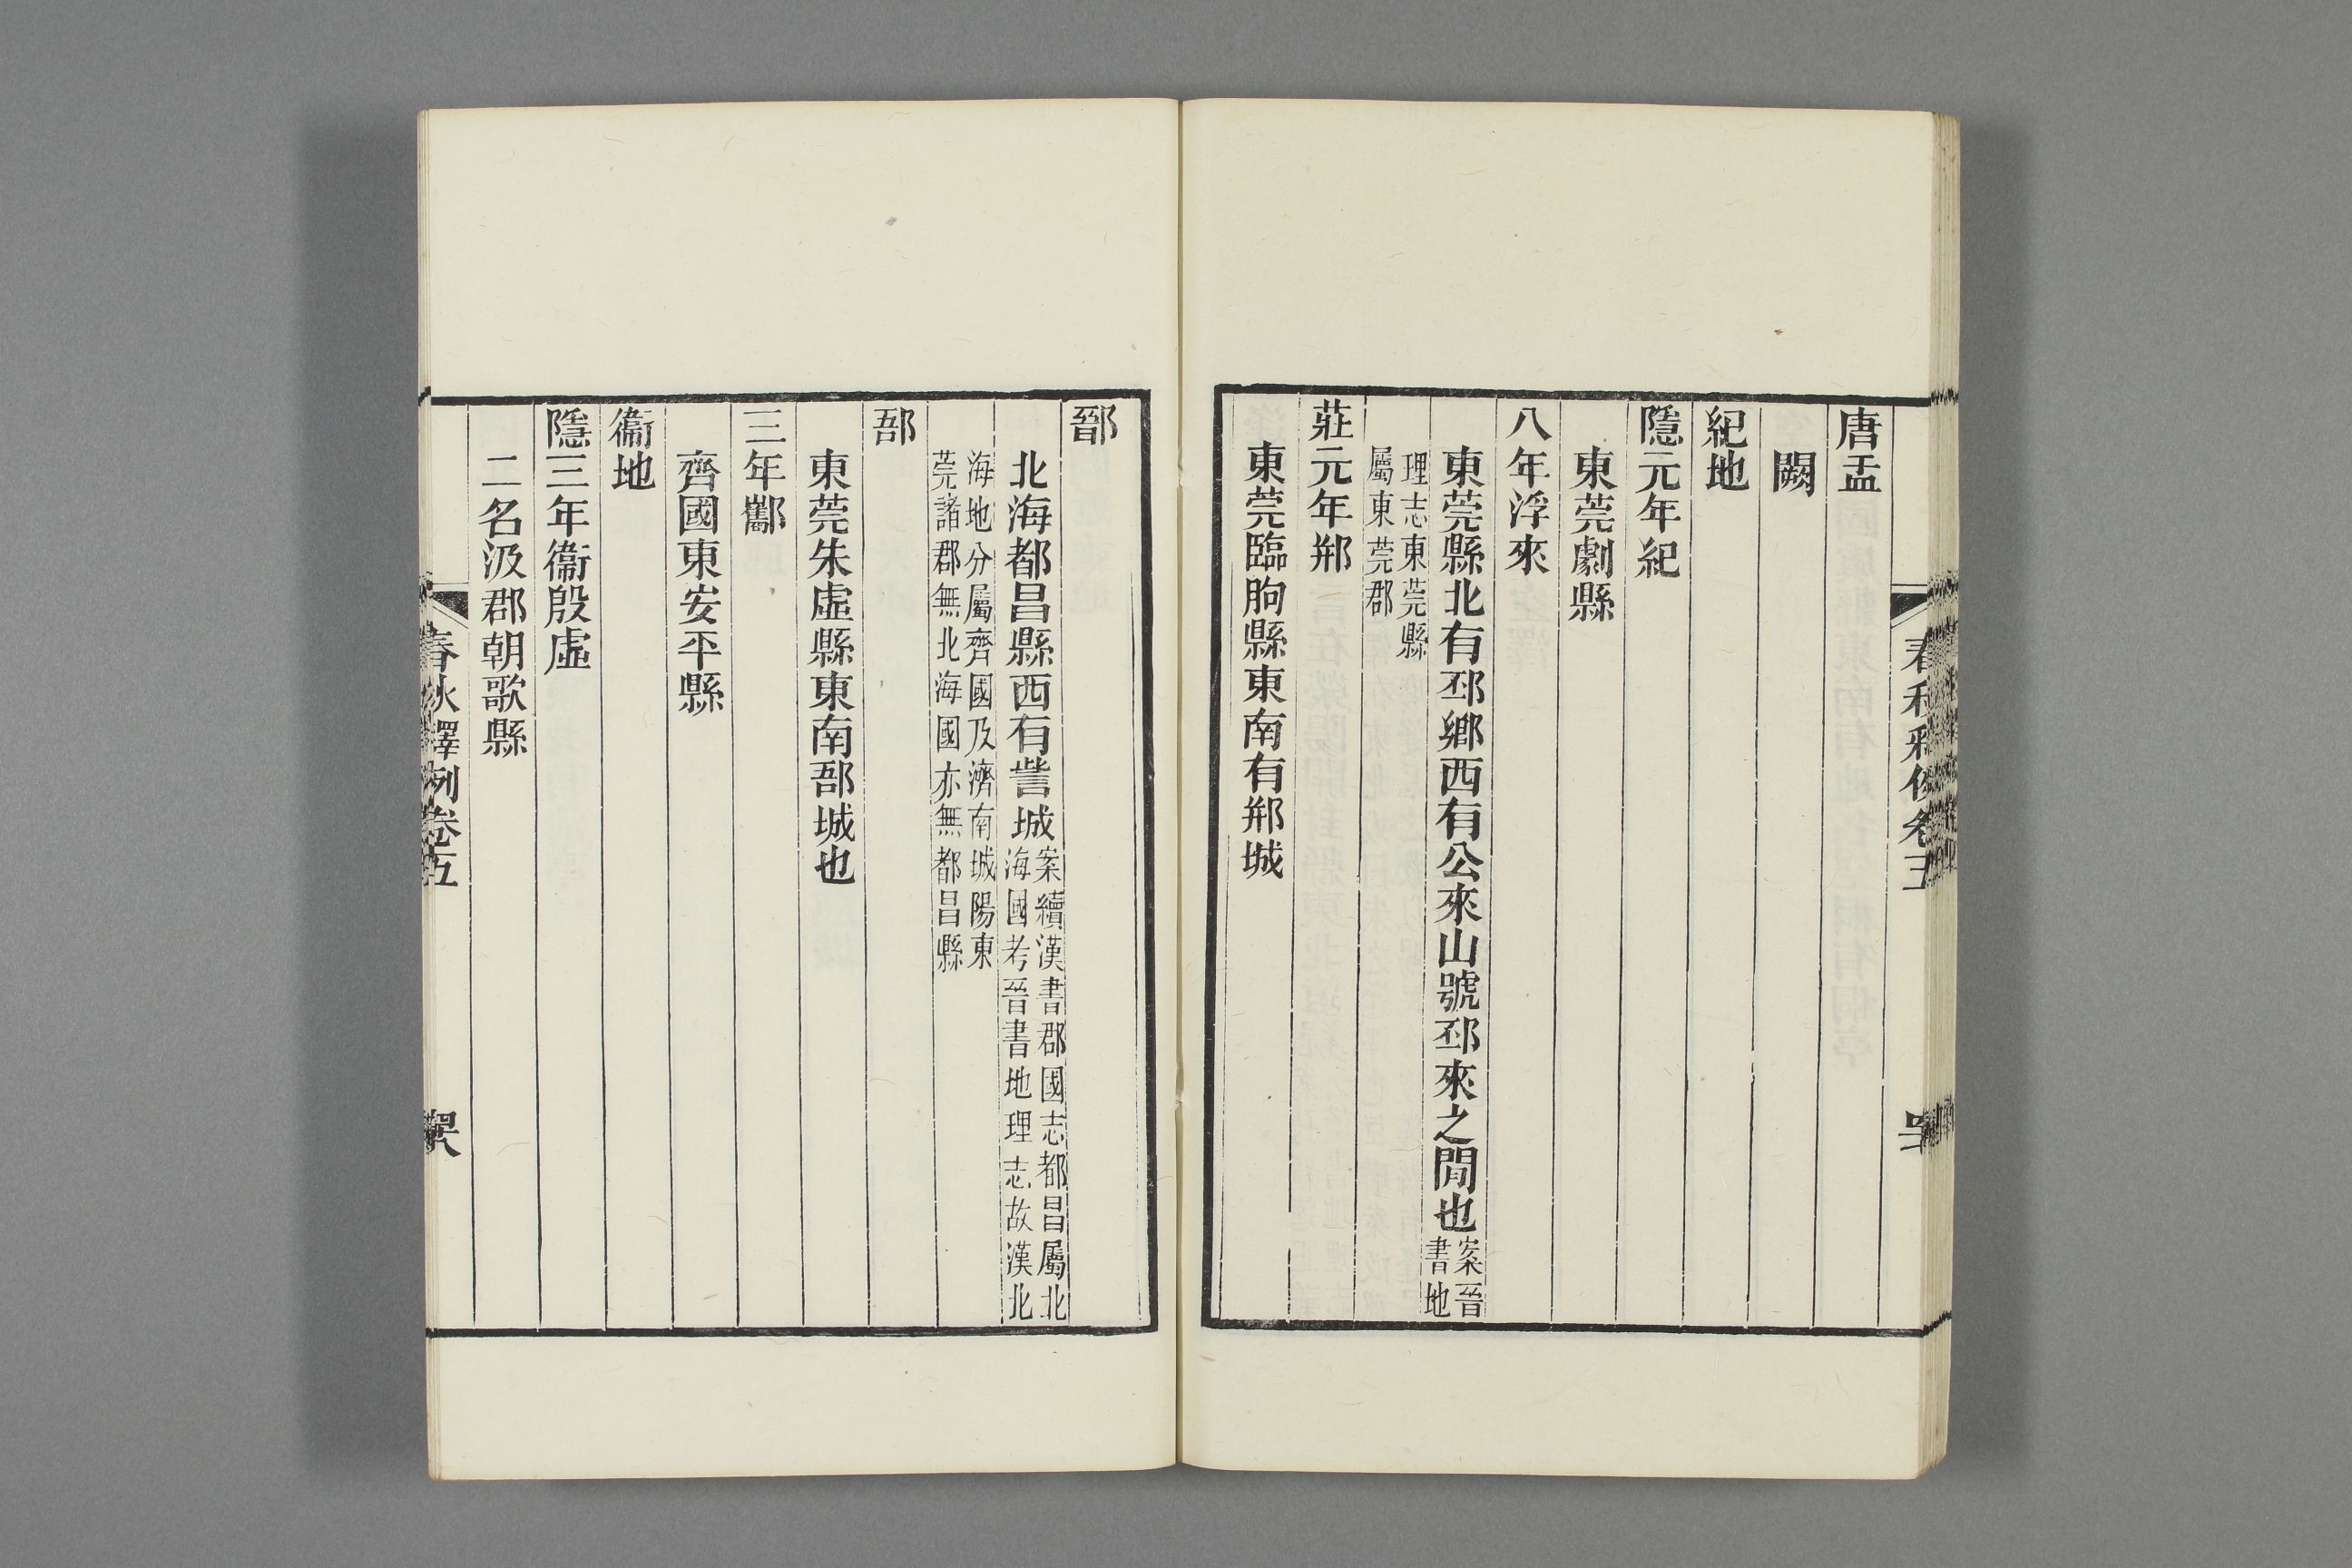 唐盂
闕
紀地
隱元年紀
東莞劇縣
八年浮來
東莞縣北有邳鄉西有公來山號邳來之閒也案晉書地
理志東莞縣屬東莞郡
莊元年郱
東莞臨朐縣東南有郱城
鄑
北海都昌縣西有訾城案續漢書郡國志都昌屬北海國考晉書地理志故漢北
海地分屬齊國及濟南城陽東莞諸郡無北海國亦無都昌縣
郚
東莞朱虛縣東南郚城也
三年酅
齊國東安平縣
衞地
隱三年衞殷虛
二名汲郡朝歌縣
春秋釋例卷五